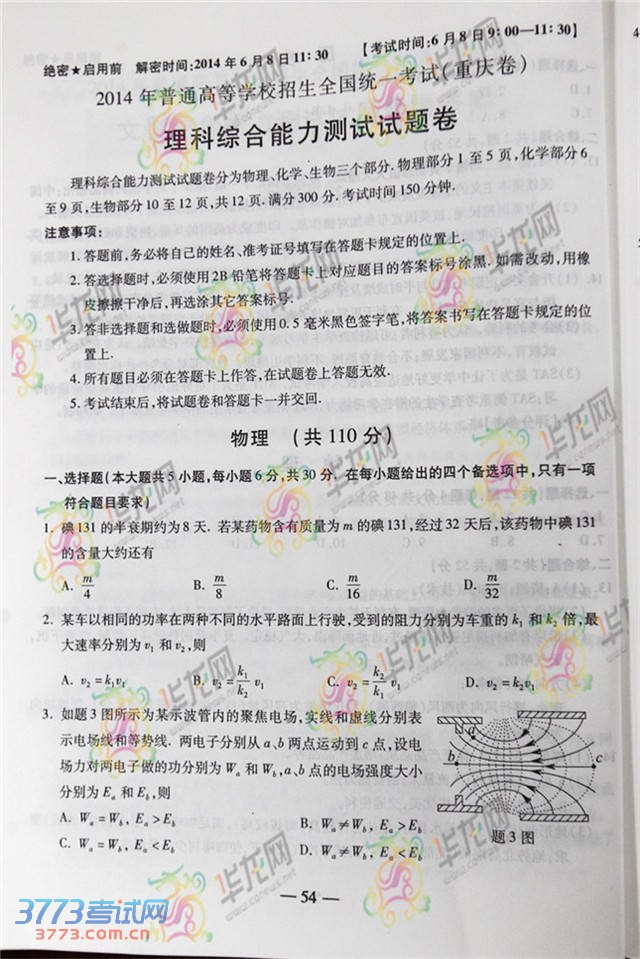 绝密★启用前 解密时间:2014年6月8日11:30 【考试时间:6月8日9:00—11:30】
2014年普通高等学校招生全国统一考试(重庆卷)
理科综合能力测试试题卷
理科综合能力测试试题卷分为物理、化学、生物三个部分.物理部分1至5页,化学部分6
至9页,生物部分10至12页,共12页.满分300分.考试时间150分钟.
注意事项:
1.答题前,务必将自己的姓名、准考证号填写在答题卡规定的位置上.
2.答选择题时,必须使用2B铅笔将答题卡上对应题目的答案标号涂黑.如需改动,用橡
皮擦擦干净后,再选涂其它答案标号.
3.答非选择题和选做题时,必须使用0.5毫米黑色签字笔,将答案书写在答题卡规定的位
置上.
4.所有题目必须在答题卡上作答,在试题卷上答题无效.
5.考试结束后,将试题卷和答题卡一并交回.
物理 (共110分)
一、选择题(本大题共5小题,每小题6分,共30分.在每小题给出的四个备选项中,只有一项
符合题目要求)
1. 碘131的半衰期约为8天.若某药物含有质量为m的碘131,经过32天后,该药物中碘131
的含量大约还有
A. m/4 B. m/8 C. m/16 D. m/32
2. 某车以相同的功率在两种不同的水平路面上行驶,受到的阻力分别为车重的k₁和k₂倍,最
大速率分别为v₁和v₂,则
A. v₂=k₁v₁ B. v₂=k₁/k₂ v₁ C. v₂=k₂/k₁ v₁ D. v₂=k₂v₁
3. 如题3图所示为某示波管内的聚焦电场,实线和虚线分别表
示电场线和等势线.两电子分别从a、b两点运动到c点,设电
场力对两电子做的功分别为Wa和Wb,a、b点的电场强度大小
分别为Ea和Eb,则
A. Wa=Wb, Ea>Eb B. Wa≠Wb, Ea>Eb
C. Wa=Wb, Ea<Eb D. Wa≠Wb, Ea<Eb
a
b
c
题3图
— 54 —
华龙网
www.cqnews.net
3773考试网
3773.com.cn